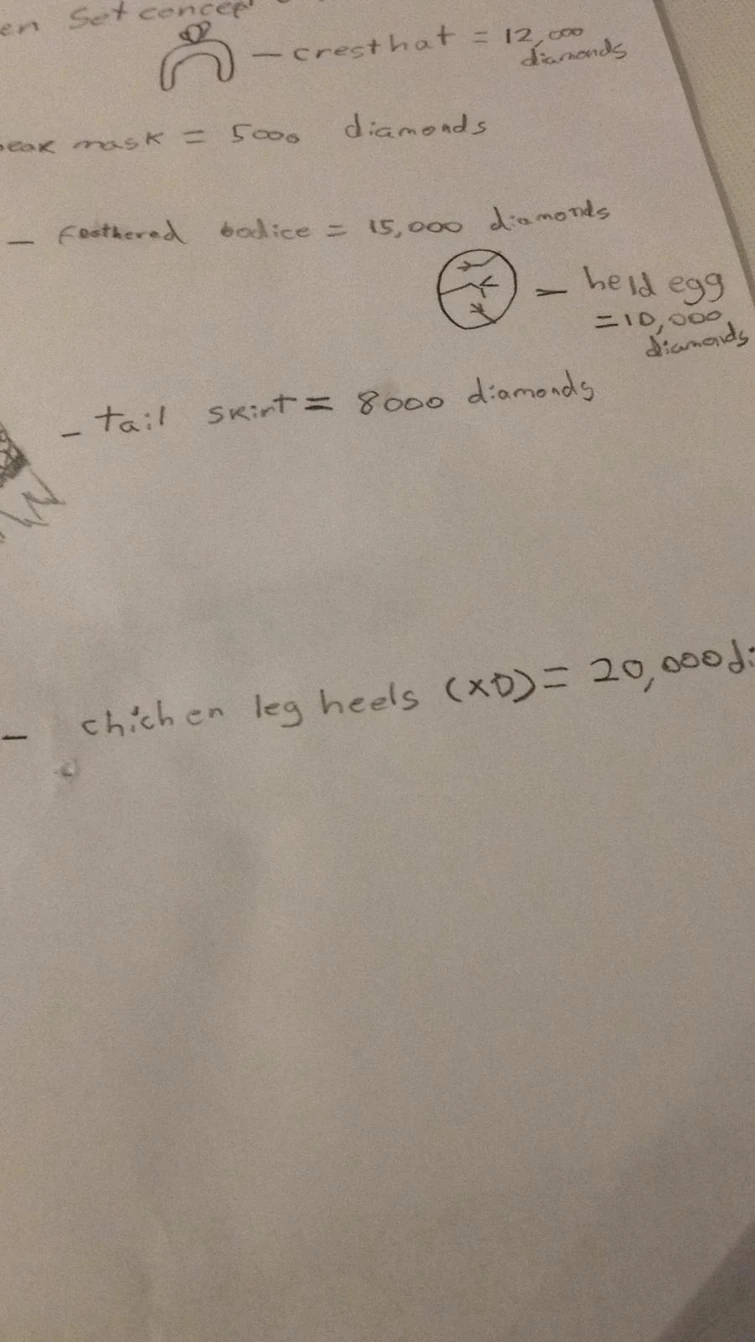 en Set concep
- crest hat = 12,000
diamonds
eak mask = 5000 diamonds
- feathered bodice = 15,000 diamonds
- held egg
= 10,000
diamonds
- tail skirt = 8000 diamonds
- chichen leg heels (XD) = 20,000 di